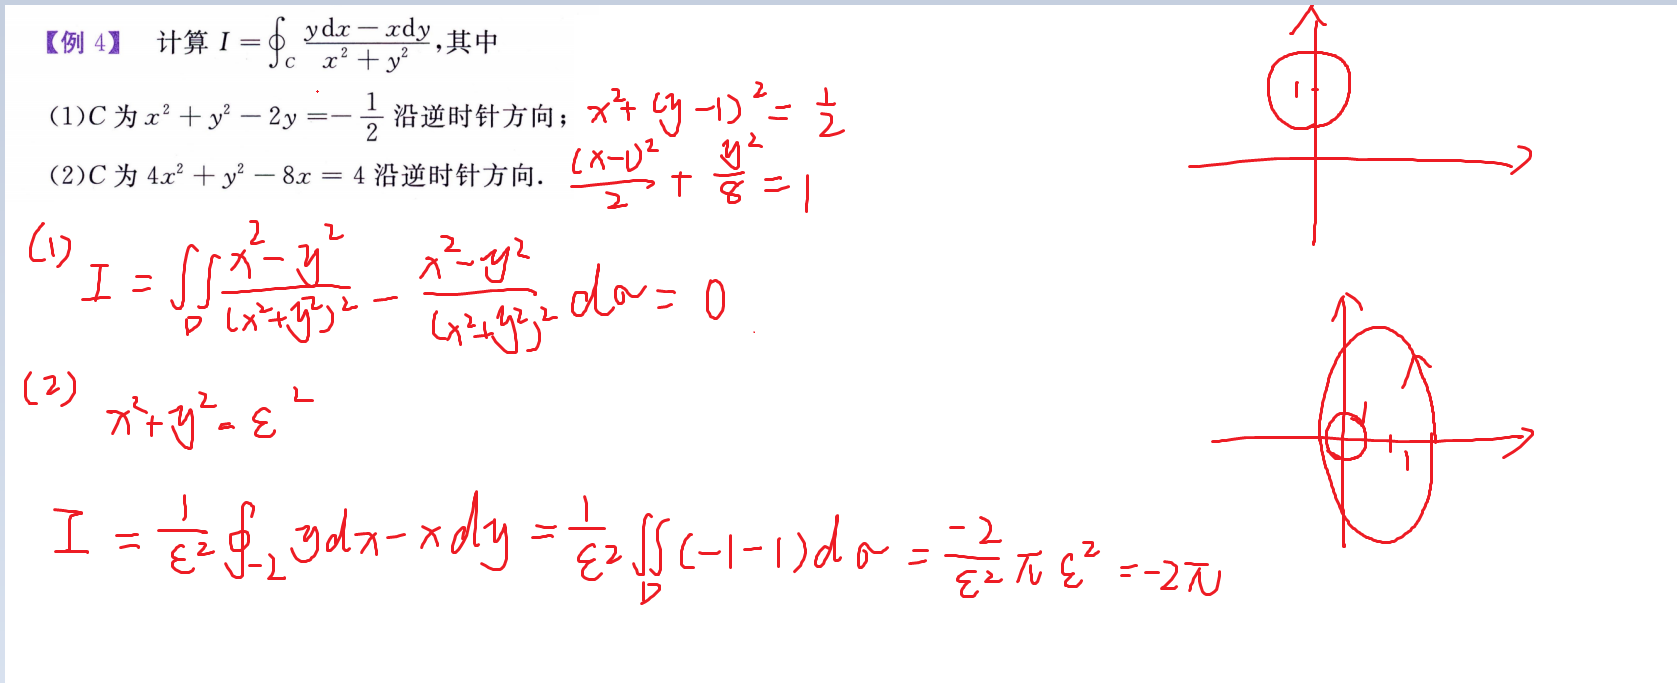 【例 4】 计算 I = ∮_C (ydx − xdy)/(x² + y²), 其中
(1)C 为 x² + y² − 2y = −1/2 沿逆时针方向; x²+(y−1)² = 1/2
(2)C 为 4x² + y² − 8x = 4 沿逆时针方向. (x−1)²/2 + y²/8 = 1
(1) I = ∬_D (x²−y²)/(x²+y²)² − (x²−y²)/(x²+y²)² dσ = 0
(2) x²+y² = ε²
I = 1/ε² ∮_{-2} ydx − xdy = 1/ε² ∬_D (−1−1)dσ = −2/ε² π ε² = −2π
1
1